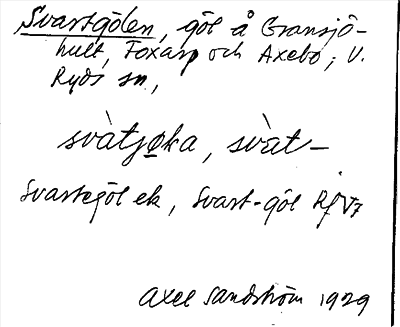 Svartgölen, göl å Gransjö-
hult, Foxarp och Axebo, V.
Ryds sn,
svàtjøka, svàt-
Svartegöl ek, Svart-göl Rf V7
Axel Sandström 1929